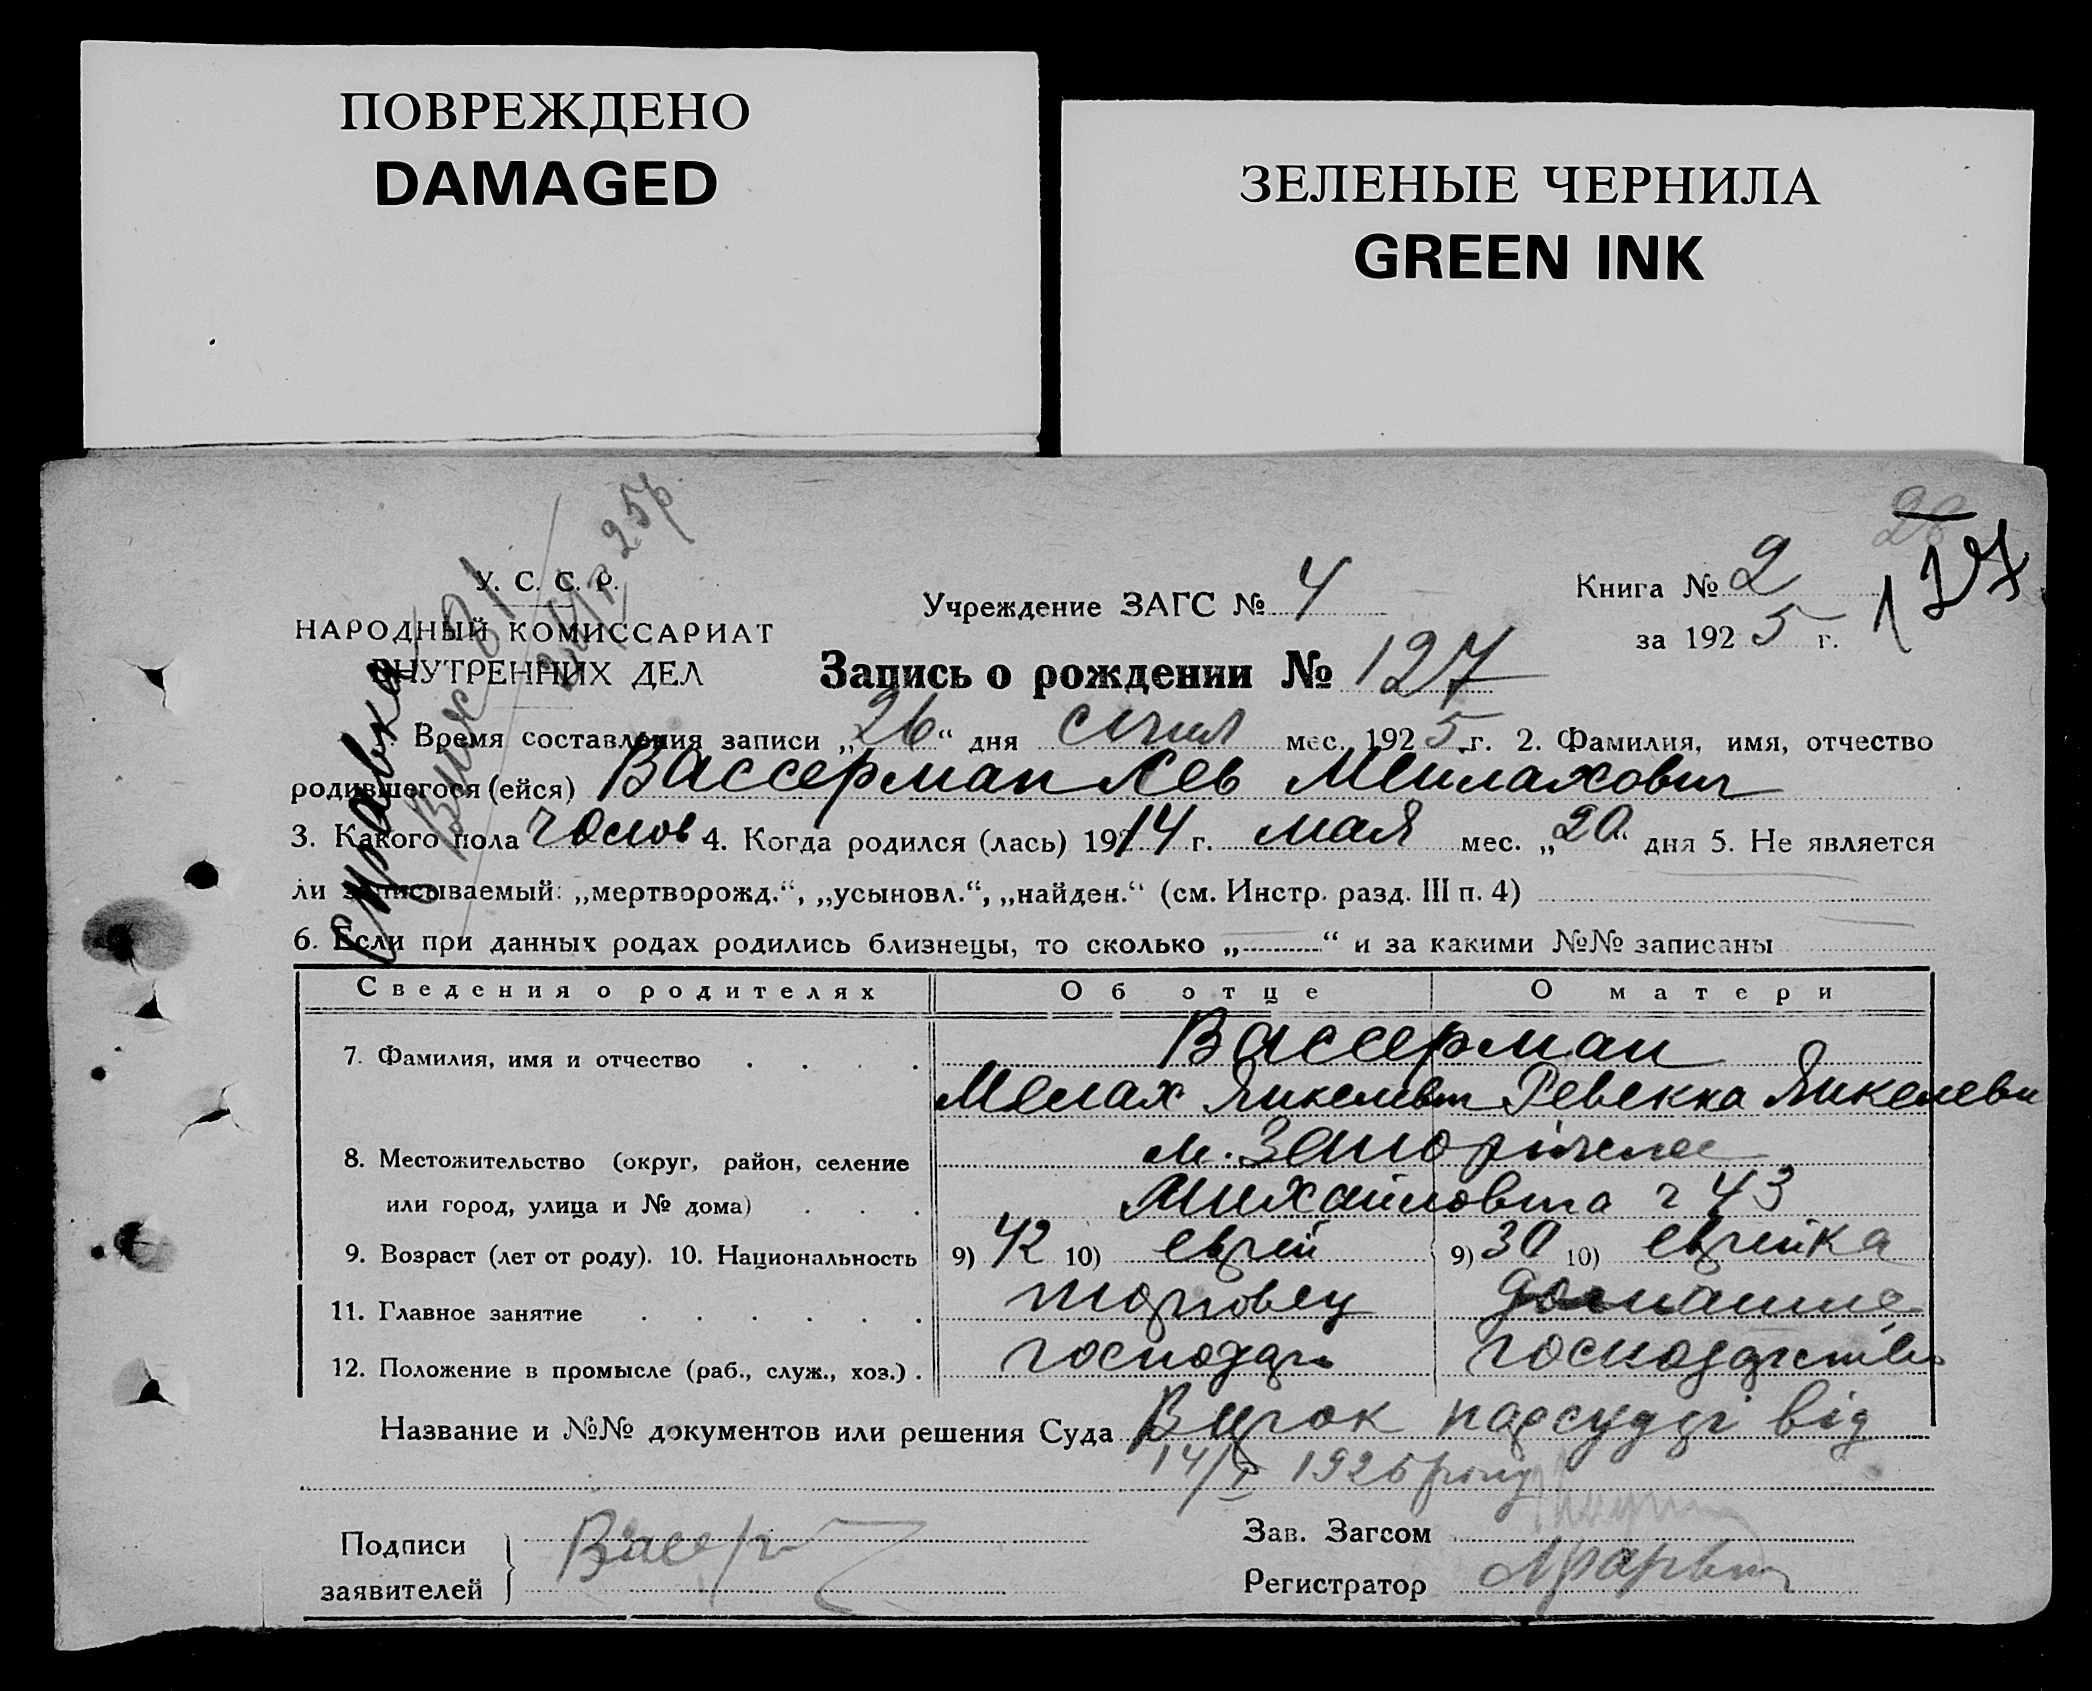 ПОВРЕЖДЕНО
DAMAGED
ЗЕЛЕНЫЕ ЧЕРНИЛА
GREEN INK
28
127
У. С. С. Р.
НАРОДНЫЙ КОМИССАРИАТ
ВНУТРЕННИХ ДЕЛ
Справка
25р.
Учреждение ЗАГС № 4
Книга № 2
за 1925 г.
Запись о рождении № 127
1. Время составления записи „26“ дня січня мес. 1925 г. 2. Фамилия, имя, отчество
родившегося (ейся) Вассерман Лев Меилахович
3. Какого пола чолов 4. Когда родился (лась) 1914 г. мая мес. „20“ дня 5. Не является
ли записываемый: „мертворожд.“, „усыновл.“, „найден.“ (см. Инстр. разд. III п. 4)
6. Если при данных родах родились близнецы, то сколько „ “ и за какими №№ записаны
Сведения о родителях Об отце О матери
7. Фамилия, имя и отчество Вассерман
Мелах Ревекка
8. Местожительство (округ, район, селение м.
или город, улица и № дома) ч 43
9. Возраст (лет от роду). 10. Национальность 9) 42 10) еврей 9) 30 10) еврейка
11. Главное занятие торговец домашнє
12. Положение в промысле (раб., служ., хоз.) господарь господарство
Название и №№ документов или решения Суда Вирок нарсудді від
14/I 1925 року
Подписи
заявителей
Зав. Загсом
Регистратор